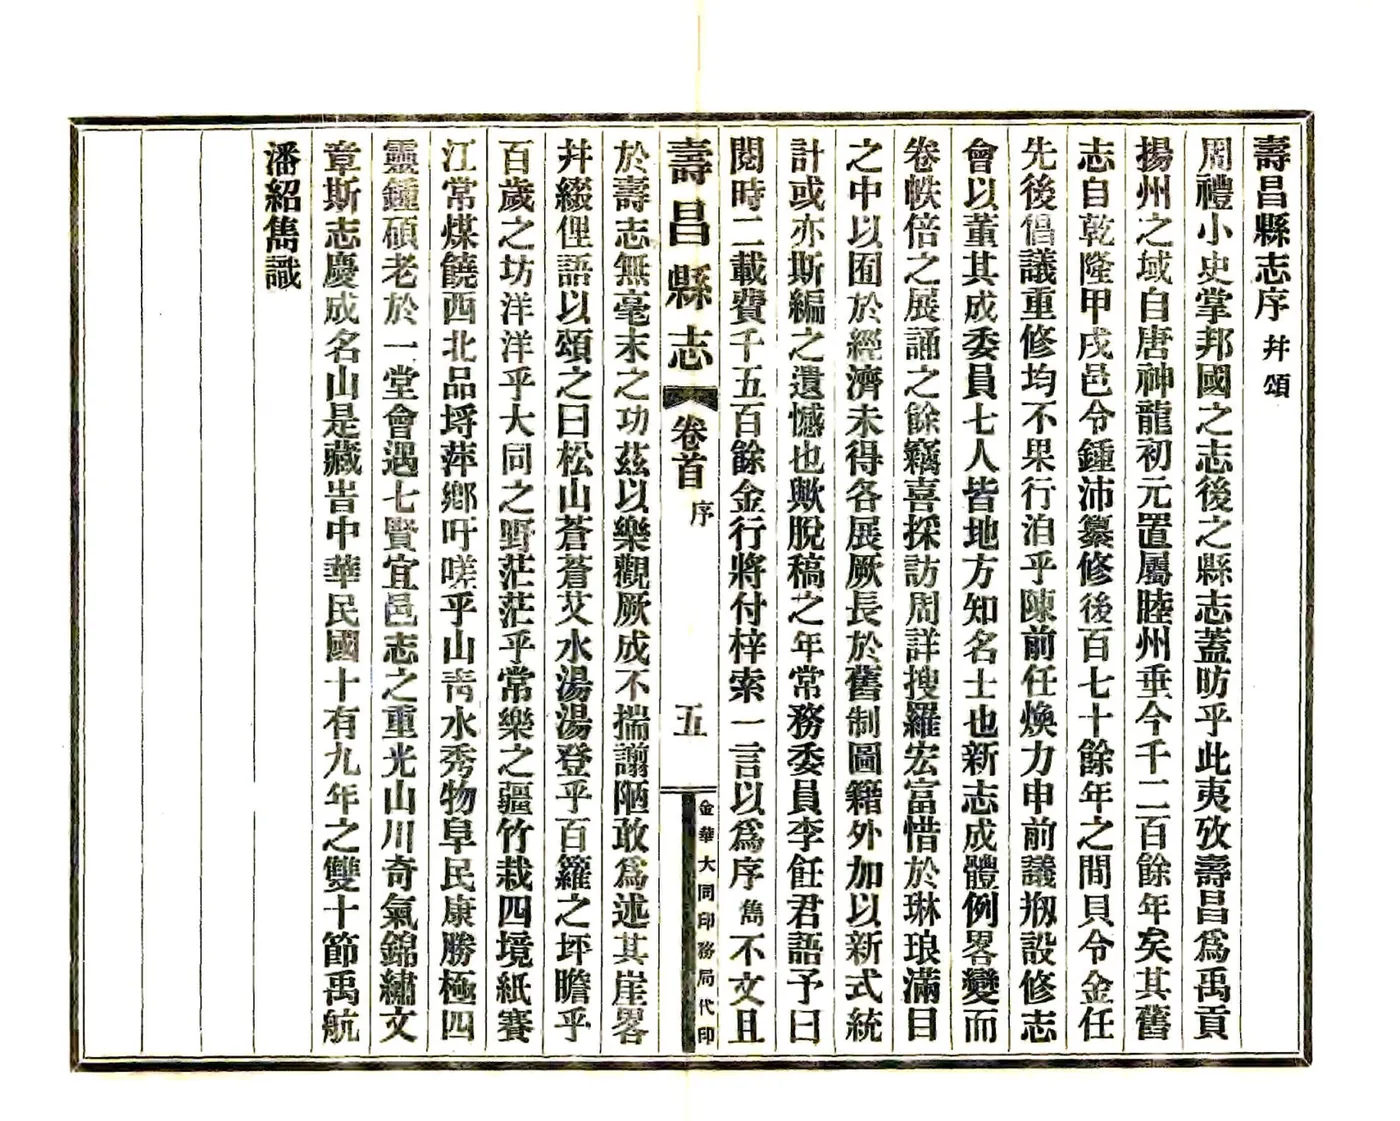 壽昌縣志序 幷頌
周禮小史掌邦國之志後之縣志蓋昉乎此夷攷壽昌爲禹貢
揚州之域自唐神龍初元置屬睦州垂今千二百餘年矣其舊
志自乾隆甲戌邑令鍾沛纂修後百七十餘年之間貝令金任
先後倡議重修均不果行洎乎陳前任煥力申前議剏設修志
會以董其成委員七人皆地方知名士也新志成體例畧變而
卷帙倍之展誦之餘竊喜採訪周詳搜羅宏富惜於琳琅滿目
之中以囿於經濟未得各展厥長於舊制圖籍外加以新式統
計或亦斯編之遺憾也歟脫稿之年常務委員李飪君語予曰
閱時二載費千五百餘金行將付梓索一言以爲序雋不文且
壽昌縣志 卷首 序 五 金華大同印務局代印
於壽志無毫末之功茲以樂觀厥成不揣譾陋敢爲述其崖畧
幷綴俚語以頌之曰松山蒼蒼艾水湯湯登乎百籮之坪瞻乎
百歲之坊洋洋乎大同之野茫茫乎常樂之疆竹栽四境紙賽
江常煤饒西北品埓萍鄉吁嗟乎山靑水秀物阜民康勝極四
靈鍾碩老於一堂會遇七賢宜邑志之重光山川奇氣錦繡文
章斯志慶成名山是藏旹中華民國十有九年之雙十節禹航
潘紹雋識